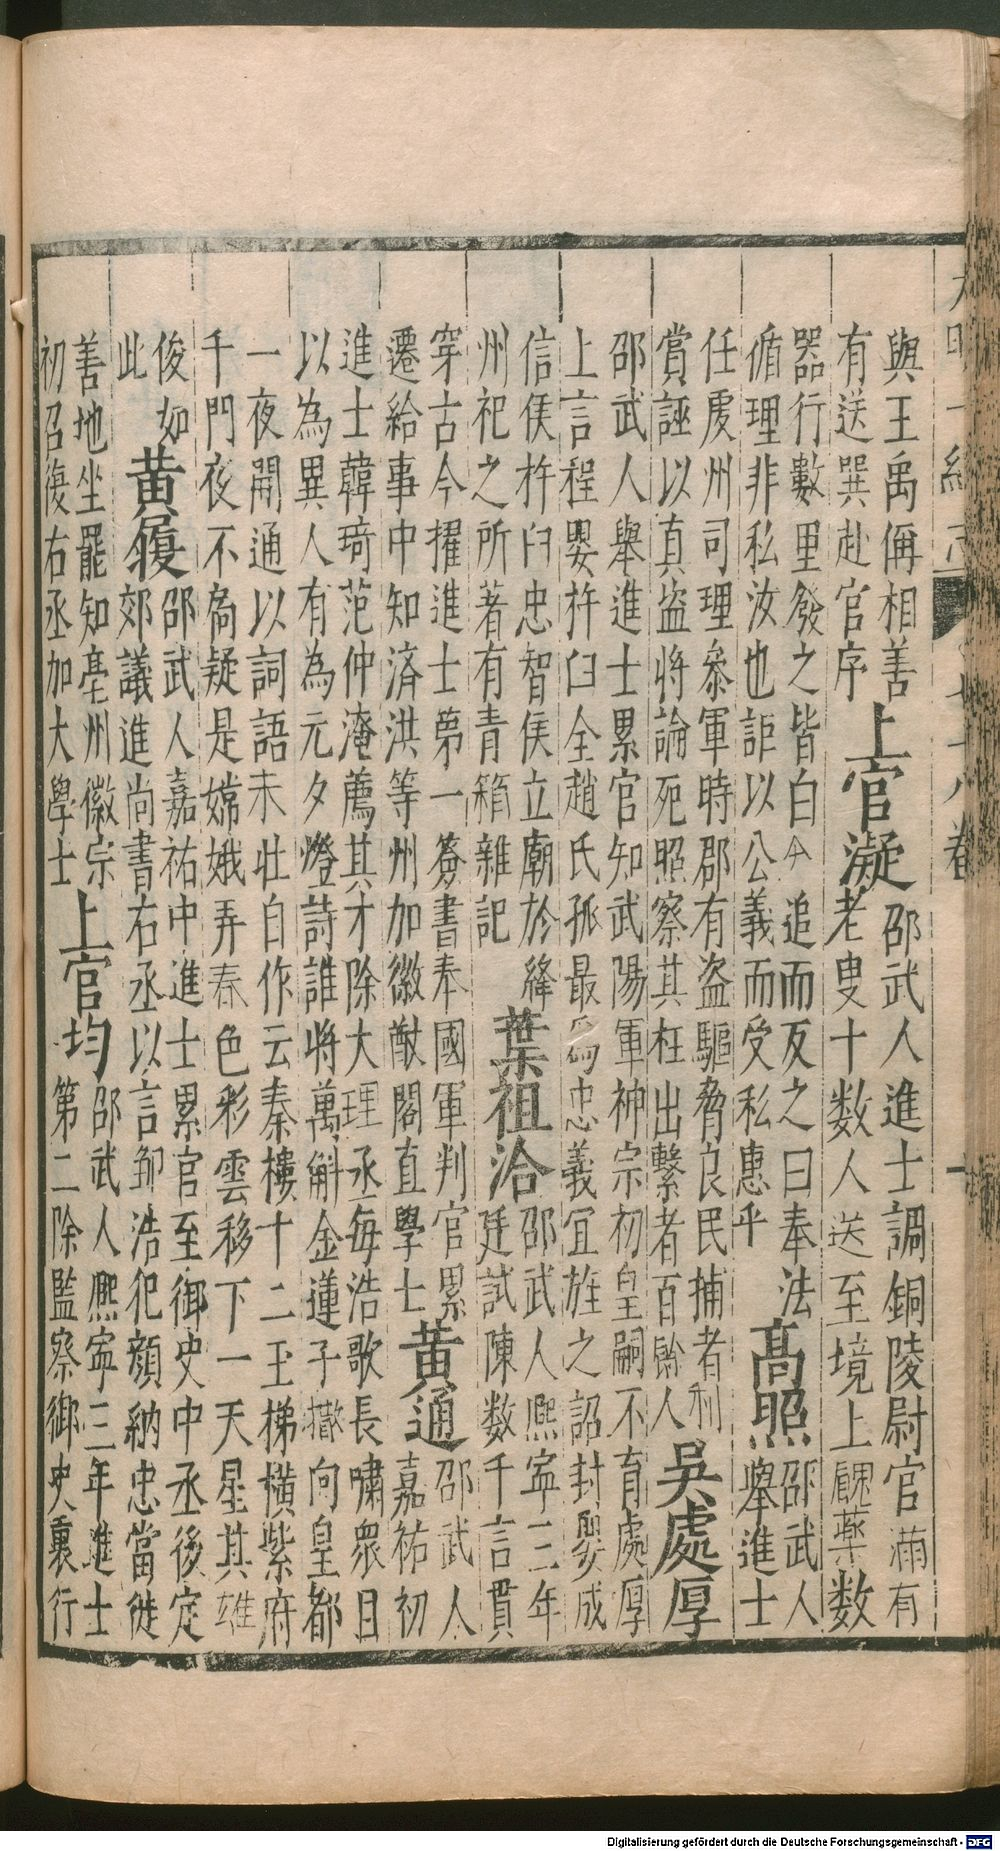 大明一統志 七十八卷
與王禹偁相善
有送巽赴官序
上官凝
邵武人進士調銅陵尉官滿有
老叟十数人送至境上餽藥数
器行數里發之皆白今追而反之曰奉法
循理非私汝也詎以公義而受私惠乎
髙照
邵武人
舉進士
任䖏州司理叅軍時郡有盗驅脅良民捕者利
賞誣以真盗將論死照察其枉出繫者百餘人
吳處厚
邵武人舉進士累官知武陽軍神宗初皇嗣不育處厚
上言程嬰杵臼全趙氏孤最為忠義宜旌之詔封嬰成
信侯杵臼忠智侯立廟於絳
州祀之所著有青箱雜記
葉祖洽
邵武人熈寧三年
廷試陳数千言貫
穿古今擢進士第一簽書奉國軍判官累
遷給事中知済洪等州加徽猷閣直學士
黃通
邵武人
嘉祐初
進士韓琦范仲淹薦其才除大理丞每浩歌長嘯衆目
以為異人有為元夕燈詩誰將萬斛金蓮子撒向皇都
一夜開通以詞語未壯自作云秦樓十二玉梯橫紫府
千門夜不扄疑是嫦娥弄春色彩雲移下一天星其雄
俊如
此
黃履
邵武人嘉祐中進士累官至御史中丞後定
郊議進尚書右丞以言鄒浩犯顔納忠當徙
善地坐罷知亳州徽宗
初召復右丞加大學士
上官均
邵武人熈寧三年進士
第二除監察御史裏行
Digitalisierung gefördert durch die Deutsche Forschungsgemeinschaft - DFG